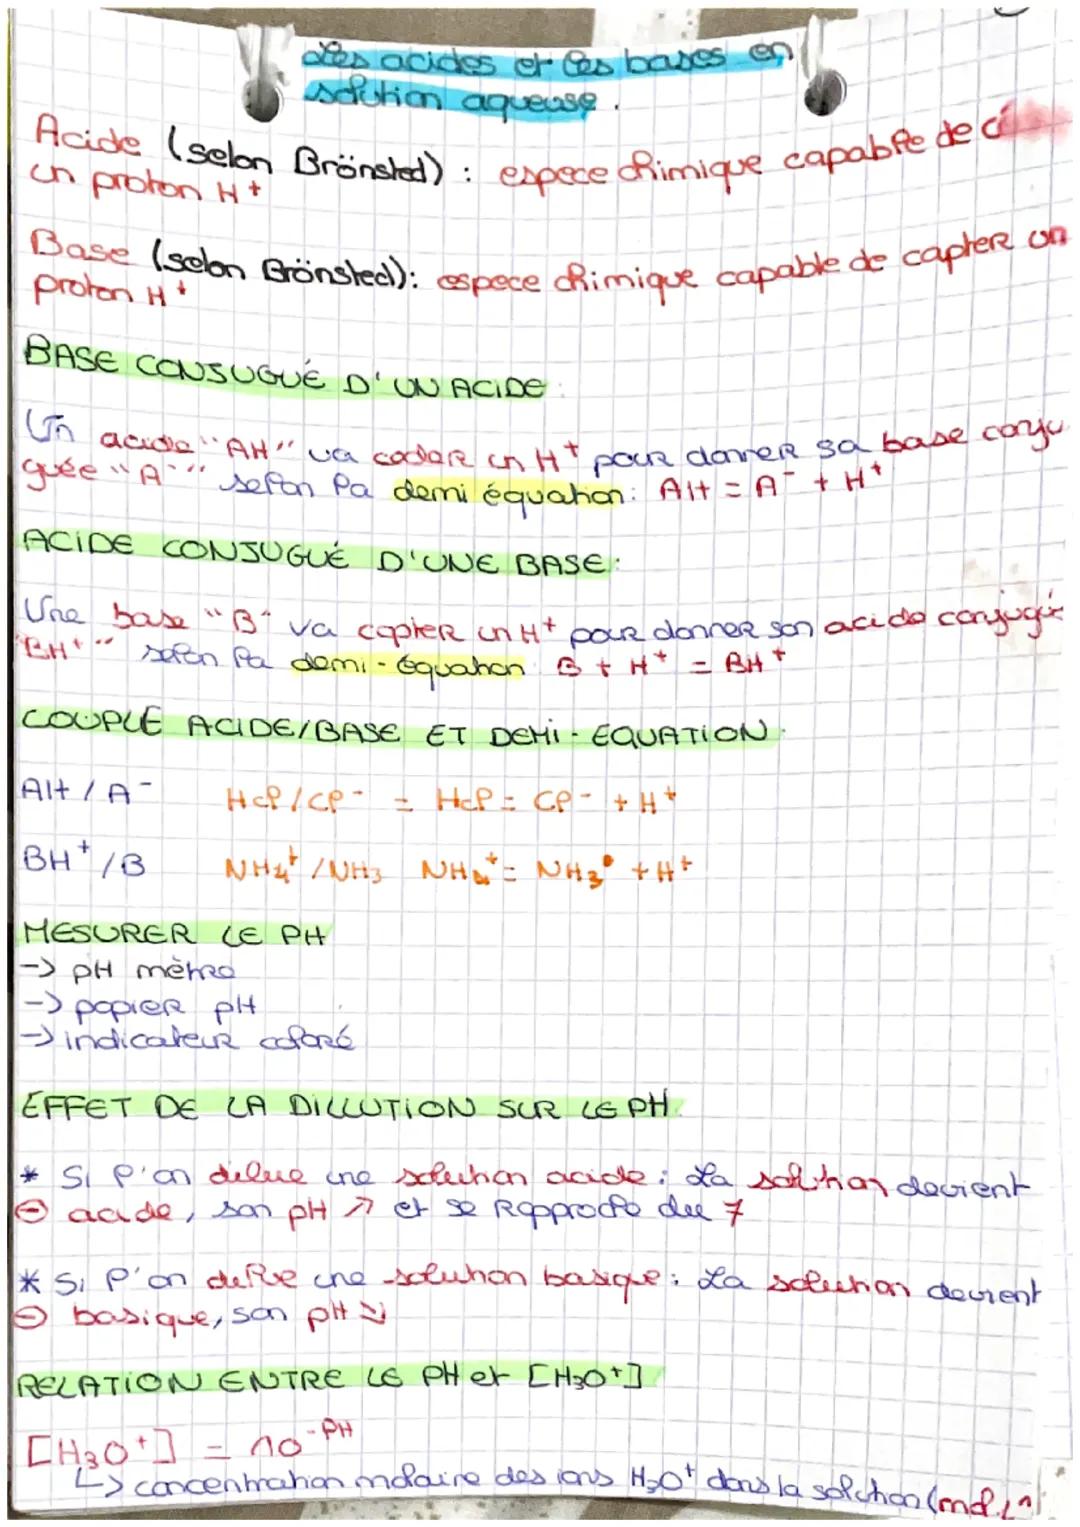 Les acides et les bases en
solution aqueuse.
Acide (selon Brönsted) : espece chimique capable de
un proton H+
Base (selon Brönsted) : espece chimique capable de capter un
proton H+
BASE CONJUGUÉ D'UN ACIDE :
Un acide "AH" va céder un H+ pour donner sa base conju
guée "A-" selon la demi équation : AH = A- + H+
ACIDE CONJUGUÉ D'UNE BASE :
Une base "B" va capter un H+ pour donner son acide conjugué
"BH+" selon la demi-équation B + H+ = BH+
COUPLE ACIDE/BASE ET DEMI-EQUATION.
AH / A- HCl/Cl- = HCl = Cl- + H+
BH+/B NH4+ / NH3 NH4+ = NH3 + H+
MESURER LE PH
-> pH mètre
-> papier pH
-> indicateur coloré
EFFET DE LA DILLUTION SUR LE PH.
* Si l'on dilue une solution acide : La solution devient
⊖ acide, son pH ↗ et se Rapproche du 7
* Si l'on dilue une solution basique : La solution devient
⊖ basique, son pH ↘
RELATION ENTRE LE PH et [H3O+]
[H3O+] = 10-PH
↳ concentration molaire des ions H3O+ dans la solution (mol.L-1